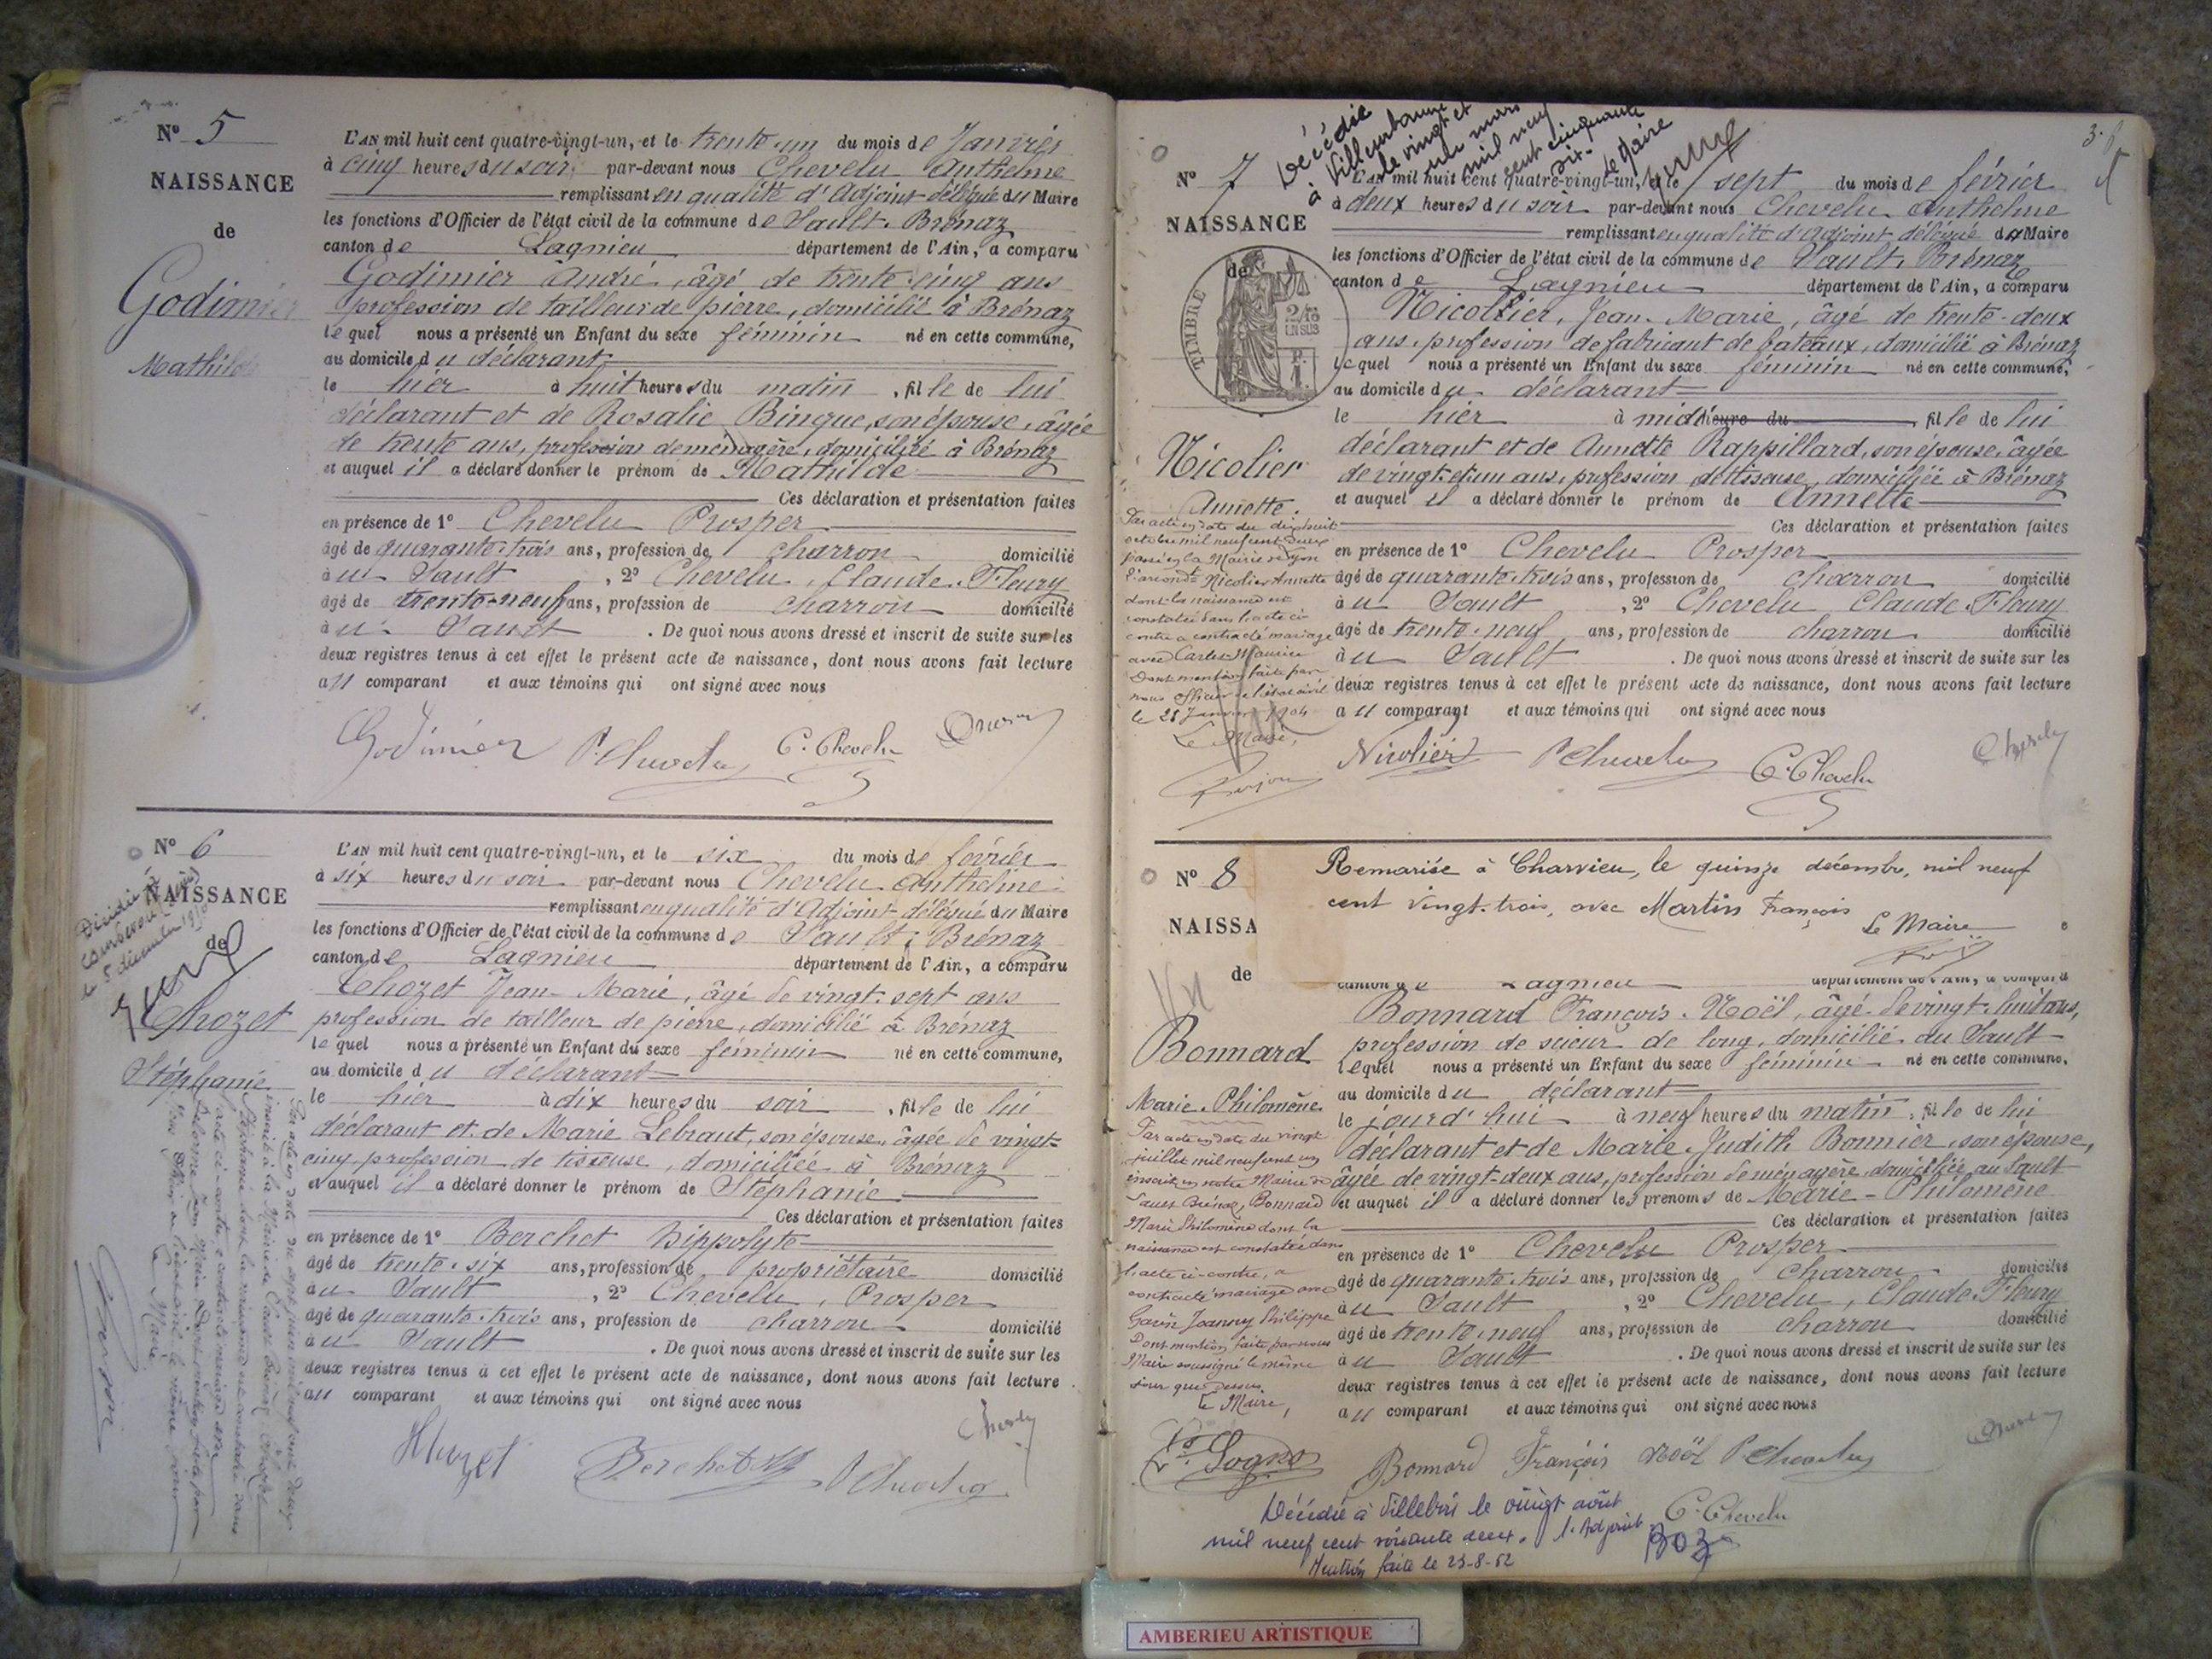 N° 5
NAISSANCE
de
Godimier
Mathilde
L'AN mil huit cent quatre-vingt-un, et le trente-un du mois de Janvier
à cinq heures du soir, par-devant nous Chevelu Anthelme
remplissant en qualité d'Adjoint délégué du Maire
les fonctions d'Officier de l'état civil de la commune de Sault-Brénaz
canton de Lagnieu département de l'Ain, a comparu
Godimier André, âgé de trente-cinq ans
profession de tailleur de pierre, domicilié à Brénaz
lequel nous a présenté un Enfant du sexe féminin né en cette commune,
au domicile du déclarant
le hier à huit heures du matin, fille de lui
déclarant et de Rosalie Bingue, son épouse, âgée
de trente ans, profession de ménagère, domiciliée à Brénaz
et auquel il a déclaré donner le prénom de Mathilde
Ces déclaration et présentation faites
en présence de 1° Chevelu Prosper
âgé de quarante-trois ans, profession de charron domicilié
au Sault, 2° Chevelu, Claude-Fleury
âgé de trente-neuf ans, profession de charron domicilié
au Sault. De quoi nous avons dressé et inscrit de suite sur les
deux registres tenus à cet effet le présent acte de naissance, dont nous avons fait lecture
au comparant et aux témoins qui ont signé avec nous
Godimier P. Chevelu C. Chevelu
N° 6
NAISSANCE
de
Chozet
Stéphanie
Décédée à
le 5 décembre 19
L'AN mil huit cent quatre-vingt-un, et le six du mois de février
à six heures du soir par-devant nous Chevelu Anthelme
remplissant en qualité d'Adjoint délégué du Maire
les fonctions d'Officier de l'état civil de la commune de Sault-Brénaz
canton de Lagnieu département de l'Ain, a comparu
Chozet Jean-Marie, âgé de vingt-sept ans
profession de tailleur de pierre, domicilié à Brénaz
lequel nous a présenté un Enfant du sexe féminin né en cette commune,
au domicile du déclarant
le hier à dix heures du soir, fille de lui
déclarant et de Marie Lebraut, son épouse, âgée de vingt-
cinq, profession de tisseuse, domiciliée à Brénaz
et auquel il a déclaré donner le prénom de Stéphanie
Ces déclaration et présentation faites
en présence de 1° Berchet Hippolyte
âgé de trente-six ans, profession de propriétaire domicilié
au Sault, 2° Chevelu, Prosper
âgé de quarante-trois ans, profession de charron domicilié
au Sault. De quoi nous avons dressé et inscrit de suite sur les
deux registres tenus à cet effet le présent acte de naissance, dont nous avons fait lecture
au comparant et aux témoins qui ont signé avec nous
Chozet Berchet P. Chevelu
3
Décédée
à Villeurbanne
le vingt et
un mars
mil neuf
cent cinquante
six.
Le Maire
N° 7
NAISSANCE
de
TIMBRE
2/10
EN SUS
Nicolier
Annette.
Par acte en date du dix-huit
octobre mil neuf cent deux
passé en la Mairie de Lyon
Nicolier Annette
dont la naissance est
constatée dans l'acte ci-
contre a contracté mariage
avec Carlet Maurice
Dont mention faite par
nous Officier de l'état civil
le 25 Janvier 1904
Le Maire,
L'AN mil huit cent quatre-vingt-un, et le sept du mois de février
à deux heures du soir par-devant nous Chevelu Anthelme
remplissant en qualité d'Adjoint délégué du Maire
les fonctions d'Officier de l'état civil de la commune de Sault-Brénaz
canton de Lagnieu département de l'Ain, a comparu
Nicollier, Jean-Marie, âgé de trente-deux
ans, profession de fabricant de bateaux, domicilié à Brénaz
lequel nous a présenté un Enfant du sexe féminin né en cette commune,
au domicile du déclarant
le hier à midi heure du, fille de lui
déclarant et de Annette Rappillard, son épouse, âgée
de vingt-et-un ans, profession de tisseuse, domiciliée à Brénaz
et auquel il a déclaré donner le prénom de Annette
Ces déclaration et présentation faites
en présence de 1° Chevelu Prosper
âgé de quarante-trois ans, profession de charron domicilié
au Sault, 2° Chevelu Claude-Fleury
âgé de trente-neuf ans, profession de charron domicilié
au Sault. De quoi nous avons dressé et inscrit de suite sur les
deux registres tenus à cet effet le présent acte de naissance, dont nous avons fait lecture
au comparant et aux témoins qui ont signé avec nous
Nicolier P Chevelu C. Chevelu
N° 8
NAISSA
de
Bonnard
Marie-Philomène
Par acte en date du vingt
juillet mil neuf cent un
inscrit en notre Mairie de
Sault-Brénaz, Bonnard
Marie Philomène dont la
naissance est constatée dans
l'acte ci-contre, a
contracté mariage avec
Gavin Joanny Philippe
Dont mention faite par nous
Maire soussigné le même
jour que dessus.
Le Maire,
Remariée à Charvieu, le quinze décembre, mil neuf
cent vingt-trois, avec Martin François
Le Maire
canton de Lagnieu département de l'Ain, a comparu
Bonnard François-Noël, âgé de vingt-huit ans,
profession de scieur de long, domicilié au Sault
lequel nous a présenté un Enfant du sexe féminin né en cette commune,
au domicile du déclarant
le jourd'hui à neuf heures du matin, fille de lui
déclarant et de Marie-Judith Bonnier, son épouse,
âgée de vingt-deux ans, profession de ménagère domiciliée au Sault
et auquel il a déclaré donner les prénoms de Marie-Philomène
Ces déclaration et présentation faites
en présence de 1° Chevelu Prosper
âgé de quarante-trois ans, profession de charron domicilié
au Sault, 2° Chevelu, Claude-Fleury
âgé de trente-neuf ans, profession de charron domicilié
au Sault. De quoi nous avons dressé et inscrit de suite sur les
deux registres tenus à cet effet le présent acte de naissance, dont nous avons fait lecture
au comparant et aux témoins qui ont signé avec nous
Bonnard François Noël P Chevelu
C. Chevelu
Décédée à Villebois le vingt août
mil neuf cent soixante deux. l'Adjoint
Mention faite le 23-8-62
AMBERIEU ARTISTIQUE